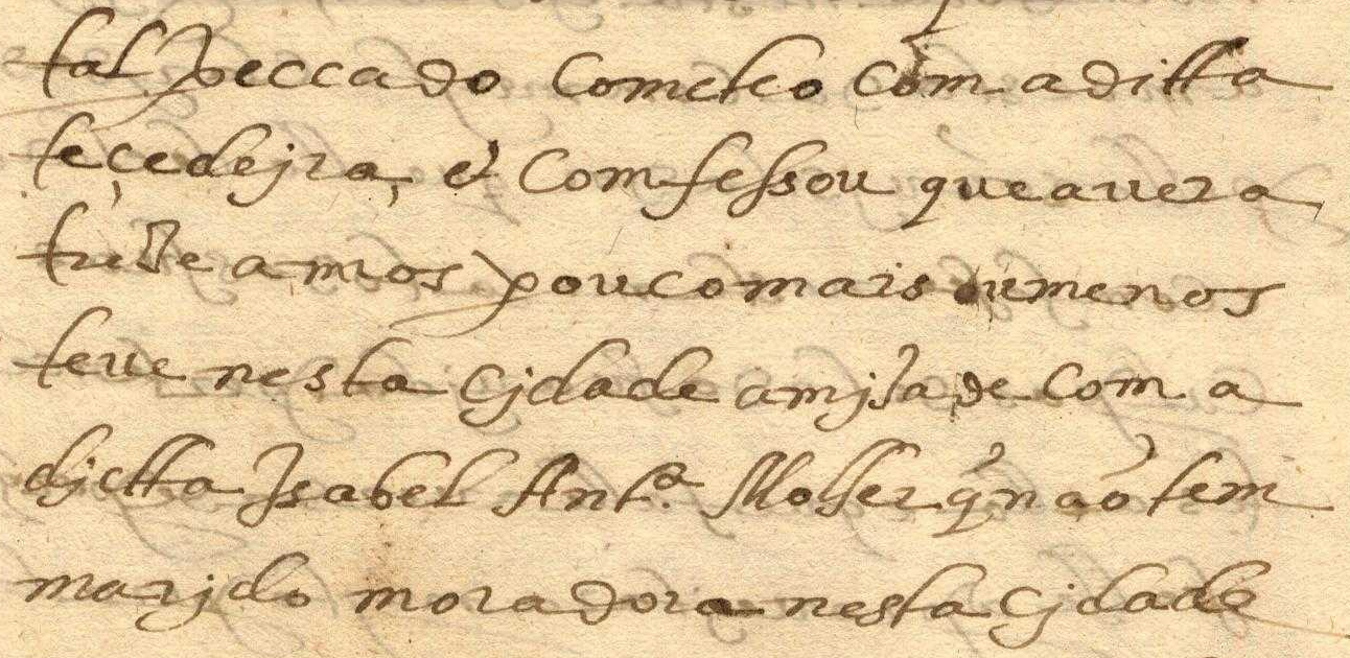 tal peccado Cometeo Com a ditta
teçedejra, et Comfessou que auera
treze annos pouco mais ou menos
teue nesta Cjdade amjzade Com a
djctta Isabel Antª Molher q̃ não tem
marjdo moradora nesta Cjdade